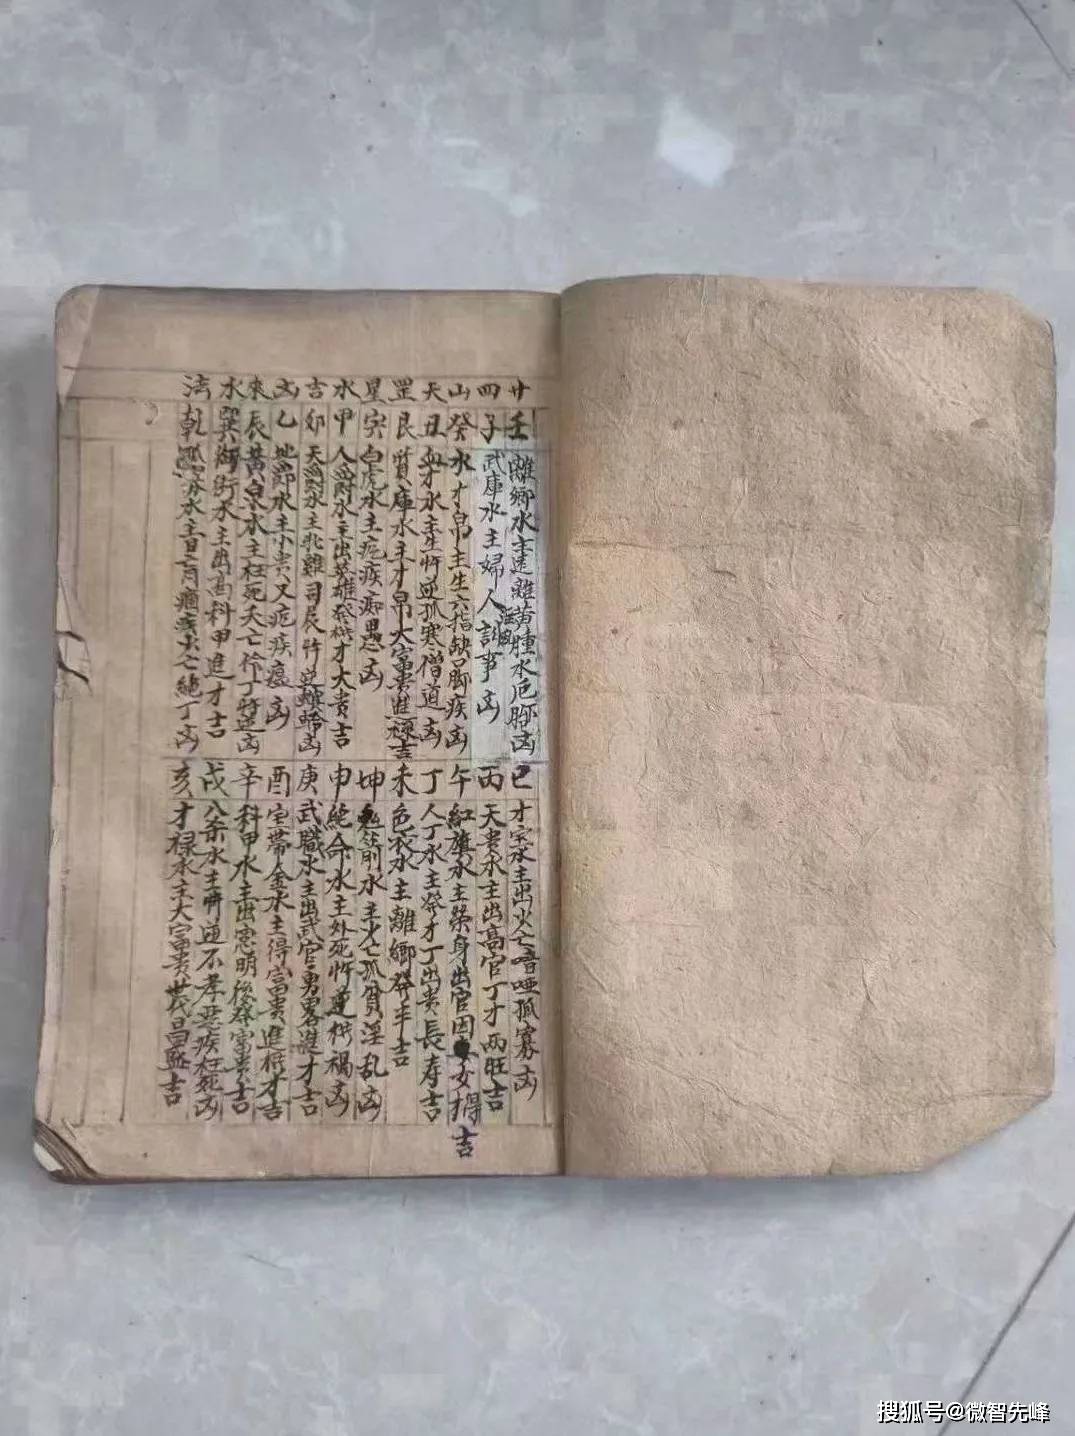 廿四山天罡星水吉凶來水法
壬 離鄉水主遠離黃腫水厄腳凶
子 武庫水主婦人訟事凶
癸 水才帛主生六指缺口腳疾凶
丑 血才水主生忤逆孤寒僧道凶
艮 質庫水主才帛大富貴進祿吉
寅 白虎水主疙疾痴愚凶
甲 人爵水主出英雄發橫才大貴吉
卯 天爵水主牝雞司辰忤逆螟蛉凶
乙 地爵水主小貴又疙疾瘟凶
辰 黃泉水主枉死夭亡忤逆凶
巽 御街水主出高科甲進才吉
乾 水主盲痼疾少亡絕丁凶
巳 才宝水主出少亡喑啞孤寡凶
丙 天貴水主出高官丁才兩旺吉
午 紅旗水主榮身出官因女得吉
丁 人丁水主發才丁出貴長寿吉
未 色衣水主離鄉發半吉
坤 水主少亡孤貧淫乱凶
申 絕命水主外死忤逆橫禍凶
庚 武職水主出武官勇畧進才吉
酉 宝帶金水主得富貴進橫才吉
辛 科甲水主出聰明後發富貴吉
戌 八杀水主忤逆不孝惡疾枉死凶
亥 才祿水主大富貴世代昌盛吉
搜狐号@微智先峰